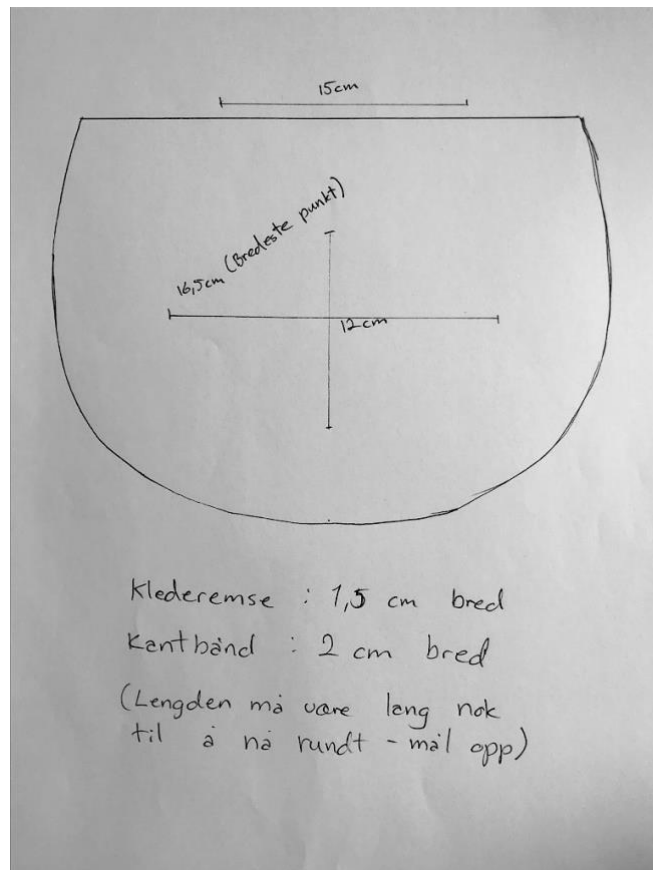 15cm
16,5cm (Bredeste punkt)
12cm
Klederemse : 1,5 cm bred
Kantbånd : 2 cm bred
(Lengden må være lang nok
til å nå rundt - mål opp)